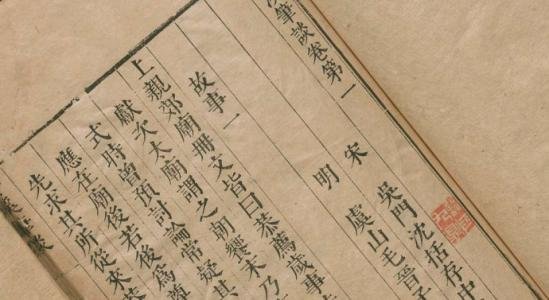 筆談卷第一
宋 吳門沈括存中
明 虞山毛晉子
故事一
上親郊廟冊文皆曰恭薦歲事
獻次太廟謂之朝饗末乃
式時曾預討論常疑其
應在廟後若後為尊
先求其所從來蓋